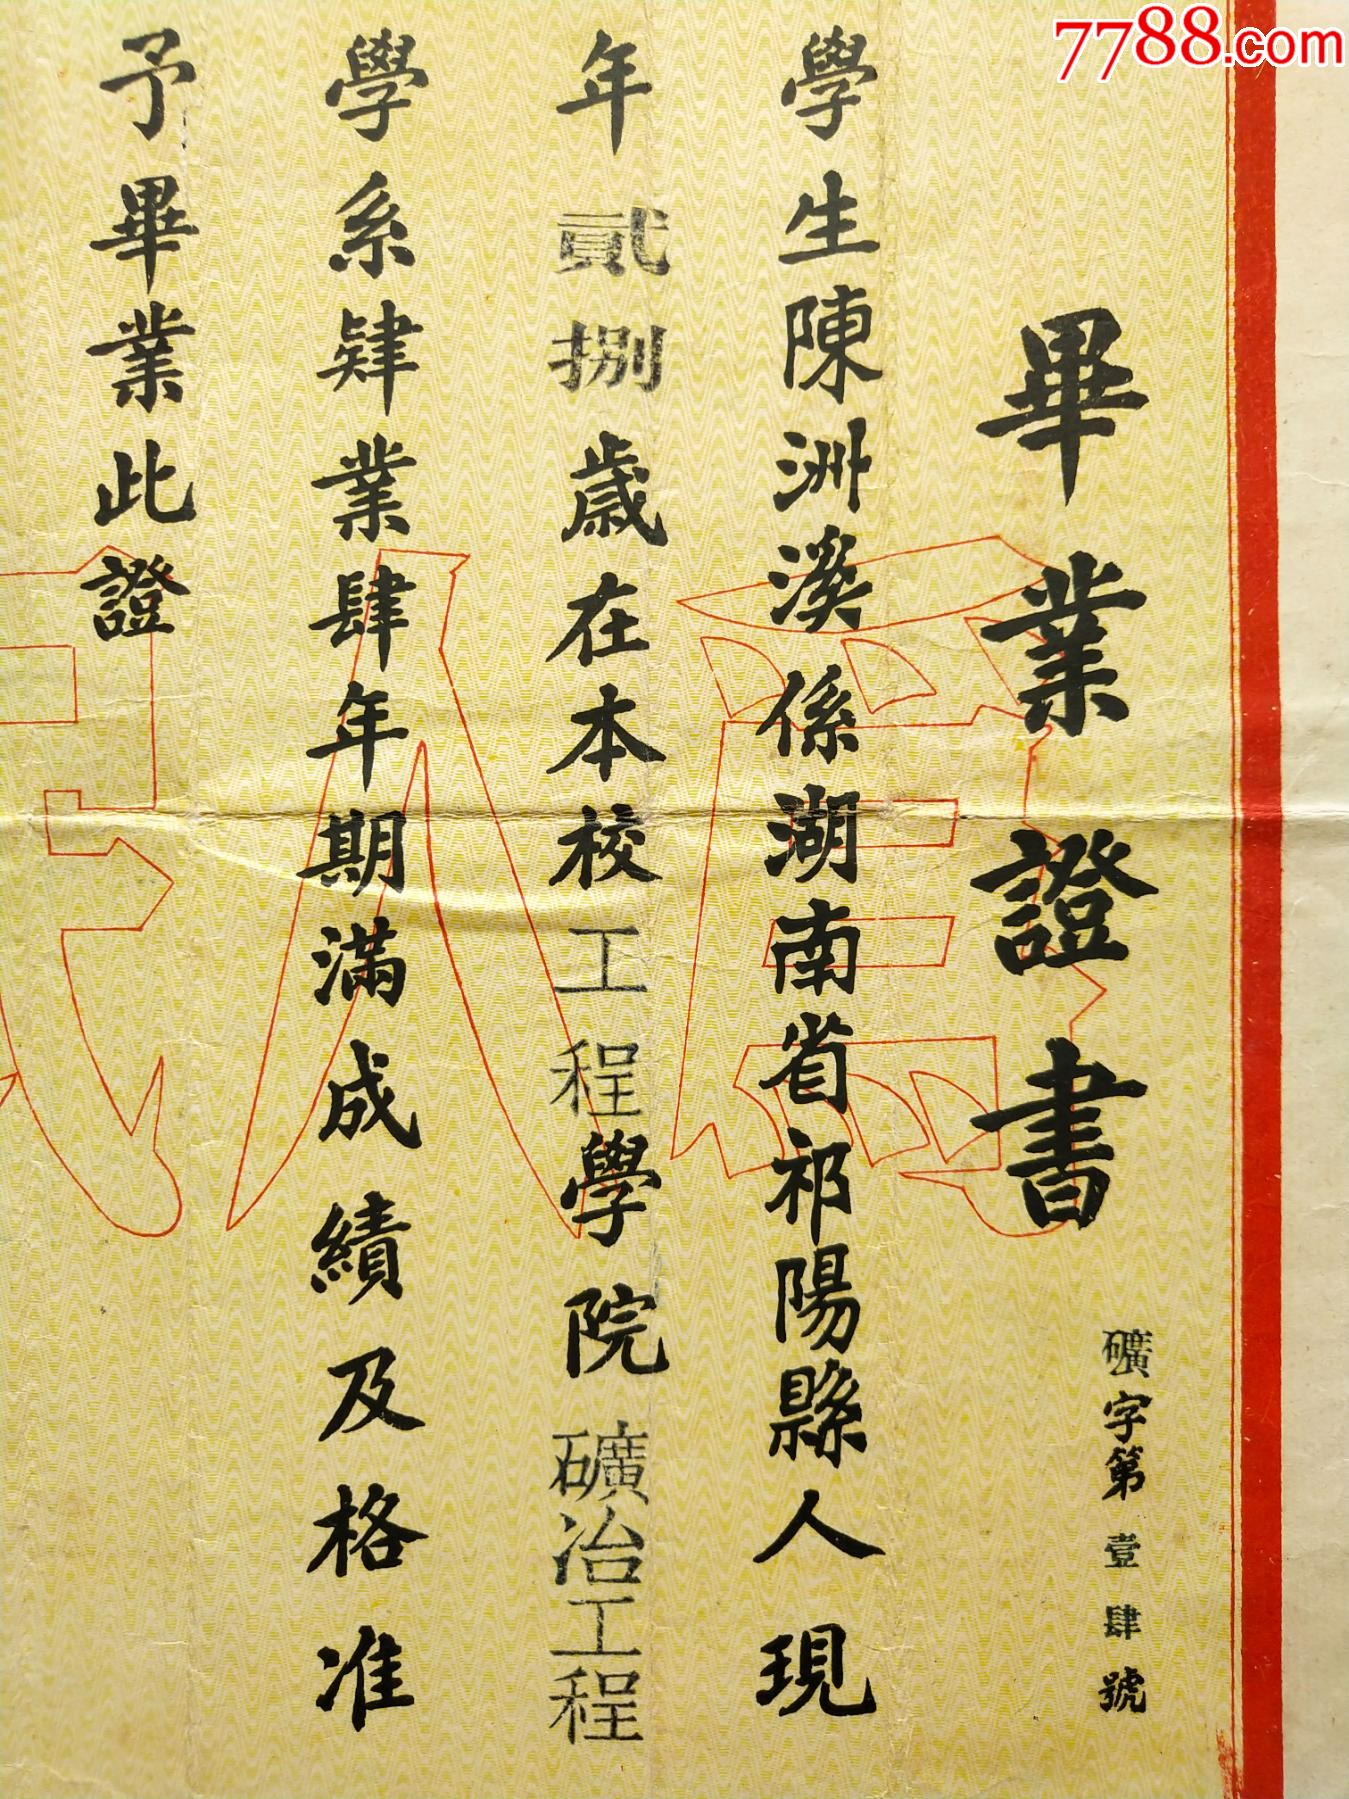 7788.com
畢業證書
礦字第壹肆號
學生陳洲溪係湖南省祁陽縣人現
年貳捌歲在本校工程學院礦冶工程
學系肄業肆年期滿成績及格准
予畢業此證